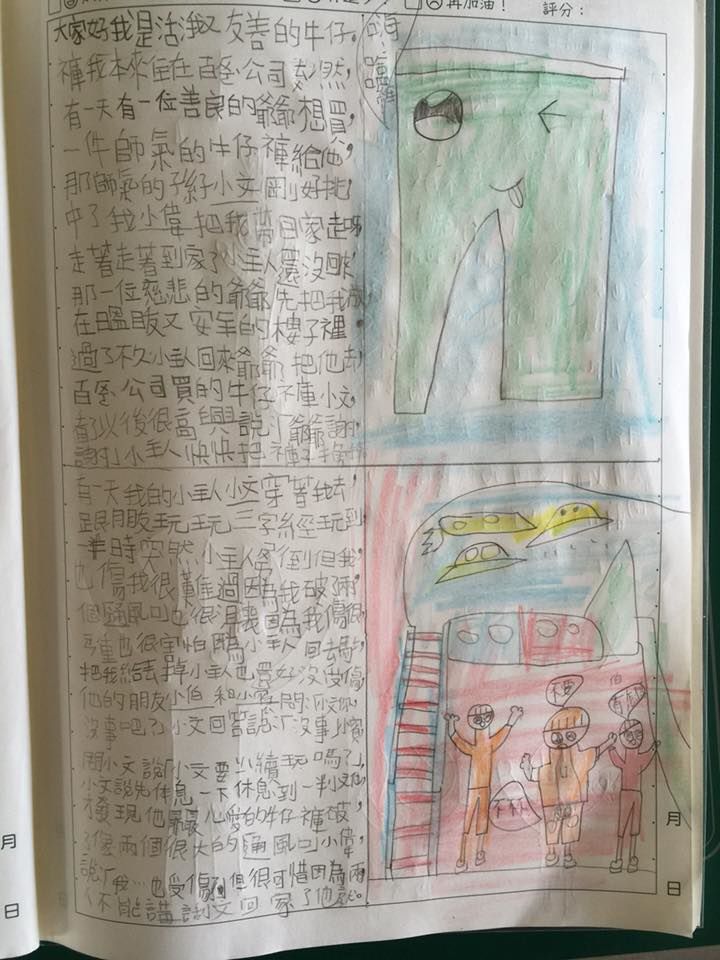 再加油！ 評分：
大家好我是活潑又友善的牛仔
褲我本來住在百貨公司突然，
有一天有一位善良的爺爺想買，
一件帥氣的牛仔褲給他，
那帥氣的孫子小文剛好挑，
中了我小偉把我帶回家走呀
走著走著到家了小主人還沒回來，
那一位慈悲的爺爺先把我放
在溫暖又安全的櫃子裡
過了不久小主人回來爺爺把他去
百貨公司買的牛仔褲小文
看以後很高興說「爺爺謝
謝」小主人快快把褲子
嗨！
哈囉
有一天我的小主人小文穿著我去
跟朋友玩玩三字經玩到
一半時突然小主人跌倒但我
也傷我很難過因為我破了兩
個通風口也很因為我傷很
嚴重也很害怕因為小主人回去
把我給丟掉小主人也還好沒受傷
他的朋友小伯和小賓問小文
沒事吧？小文回答說「沒事」小賓
問小文說「小文要繼續玩嗎？」
小文說先休息一下休息到一半小文
發現他最心愛的牛仔褲破
了兩個很大的通風口小偉
說「我…也受傷了但很可惜因為
不能講話小文回家了
不要
有
月
日
月
日